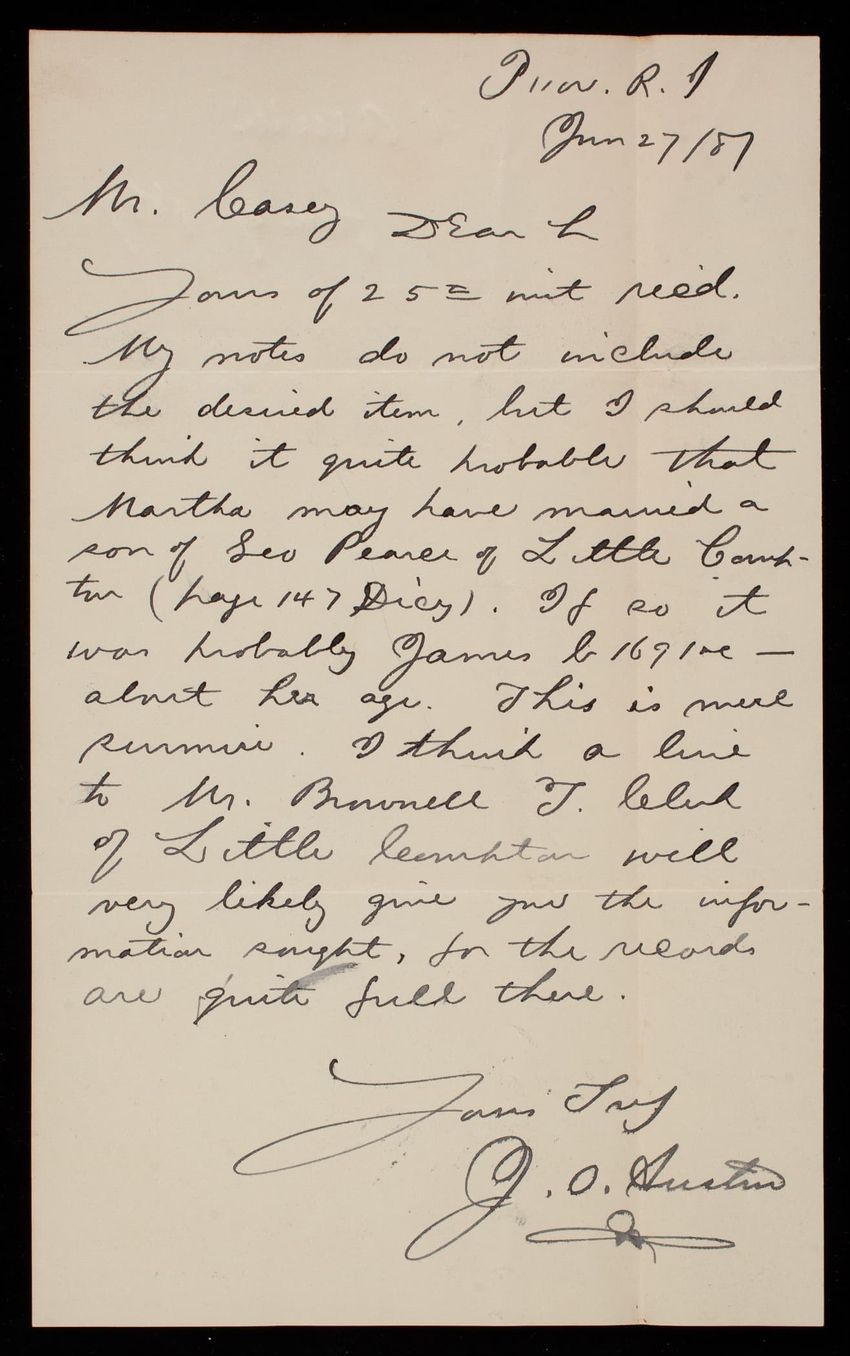 Prov. R. I
Jun 27/87
Mr. Casey Dear Sr
Yours of 25th inst rec'd.
My notes do not include
the desired item, but I should
think it quite probable that
Martha may have married a
son of Geo Pearce of Little Comp-
ton (page 147 Dicy). If so it
was probably James b 1691 &c —
about her age. This is mere
surmise. I think a line
to Mr. Brownell T. Clerk
of Little Compton will
very likely give you the infor-
mation sought, for the records
are quite full there.
Yours Try
J. O. Austin